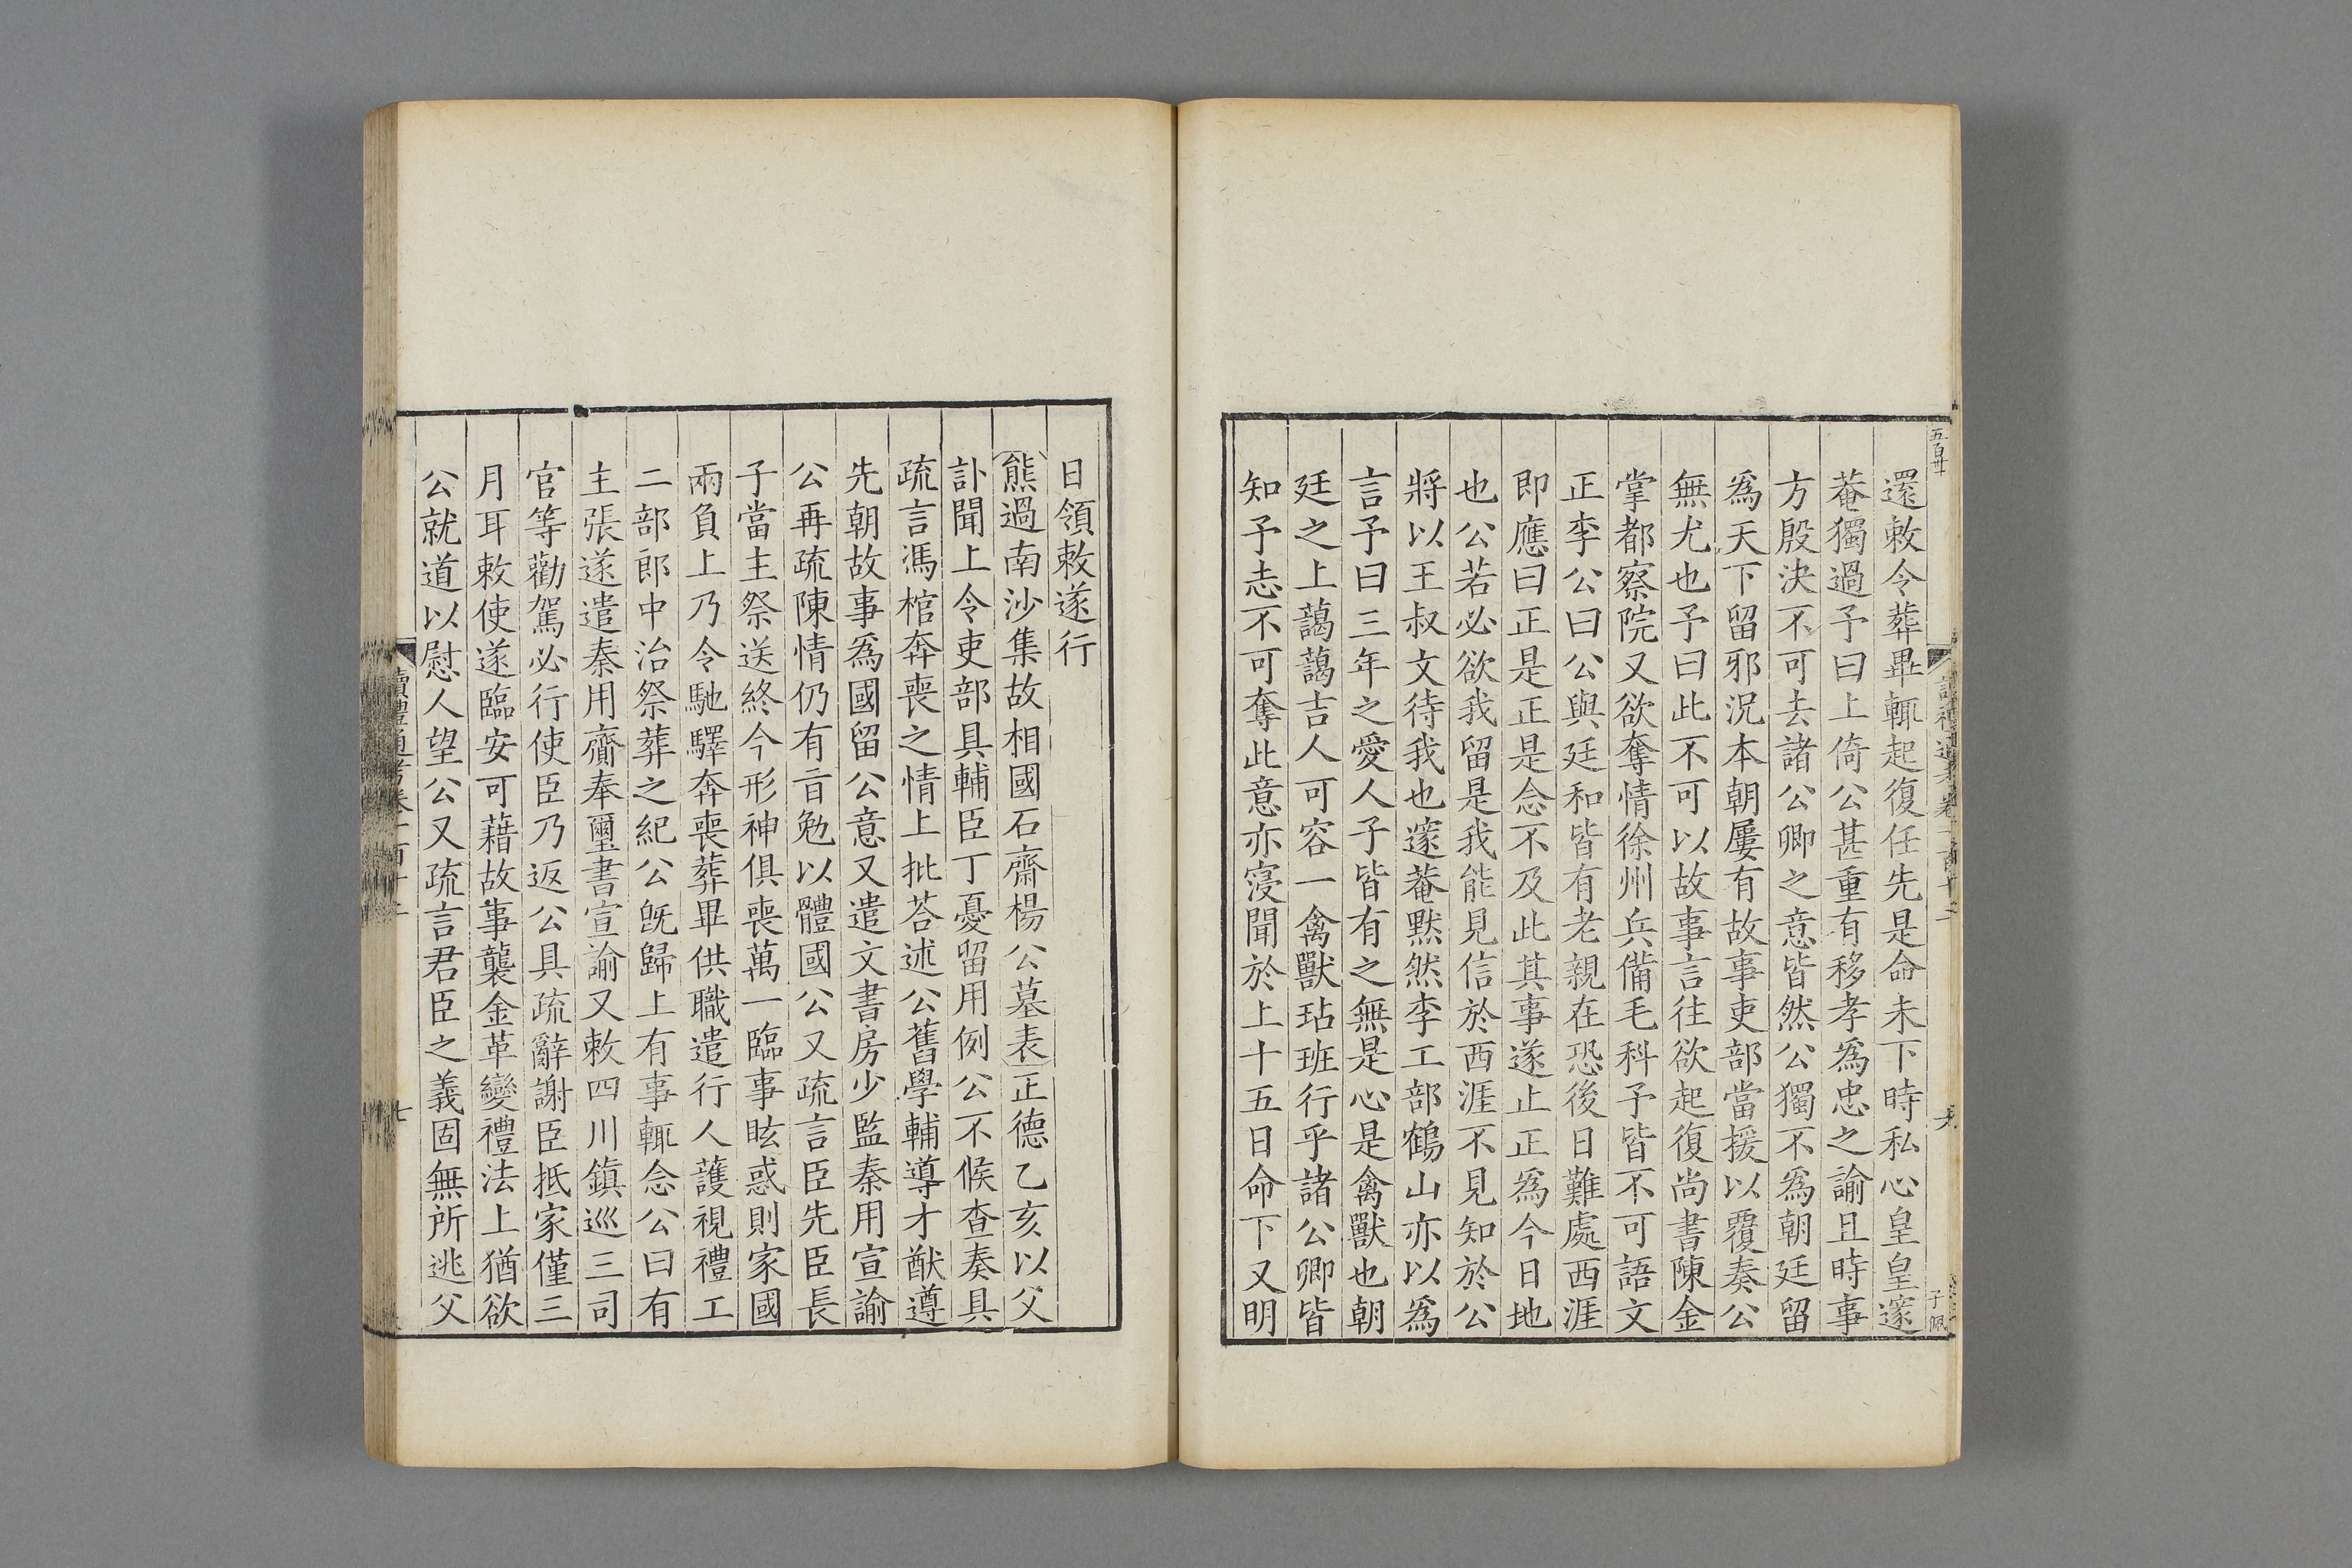 還敕令葬畢輒起復任先是命未下時私心皇皇邃
菴獨過予曰上倚公甚重有移孝爲忠之諭且時事
方殷決不可去諸公卿之意皆然公獨不爲朝廷留
爲天下留邪況本朝屢有故事吏部當援以覆奏公
無尤也予曰此不可以故事言往欲起復尚書陳金
掌都察院又欲奪情徐州兵備毛科予皆不可語文
正李公曰公與廷和皆有老親在恐後日難處西涯
即應曰正是正是念不及此其事遂止正爲今日地
也公若必欲我留是我能見信於西涯不見知於公
將以王叔文待我也邃菴默然李工部鶴山亦以爲
言予曰三年之愛人子皆有之無是心是禽獸也朝
廷之上藹藹吉人可容一禽獸玷班行乎諸公卿皆
知予志不可奪此意亦寖聞於上十五日命下又明
日領敕遂行
熊過南沙集故相國石齋楊公墓表正德乙亥以父
訃聞上令吏部具輔臣丁憂留用例公不候查奏具
疏言馮棺奔喪之情上批荅述公舊學輔導才猷遵
先朝故事爲國留公意又遣文書房少監秦用宣諭
公再疏陳情仍有旨勉以體國公又疏言臣先臣長
子當主祭送終今形神俱喪萬一臨事眩惑則家國
兩負上乃令馳驛奔喪葬畢供職遣行人護視禮工
二部郎中治祭葬之紀公旣歸上有事輒念公曰有
主張遂遣秦用齎奉璽書宣諭又敕四川鎮巡三司
官等勸駕必行使臣乃返公具疏辭謝臣抵家僅三
月耳敕使遂臨安可藉故事襲金革變禮法上猶欲
公就道以慰人望公又疏言君臣之義固無所逃父
讀禮通考卷一百十二
七